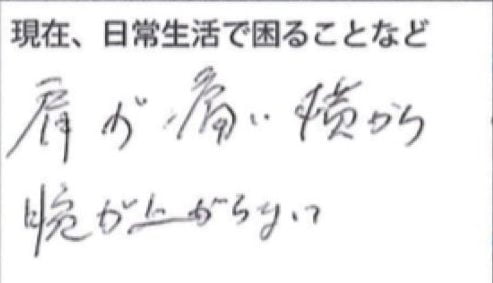 現在、日常生活で困ることなど
肩が痛い 横から
腕が上がらない